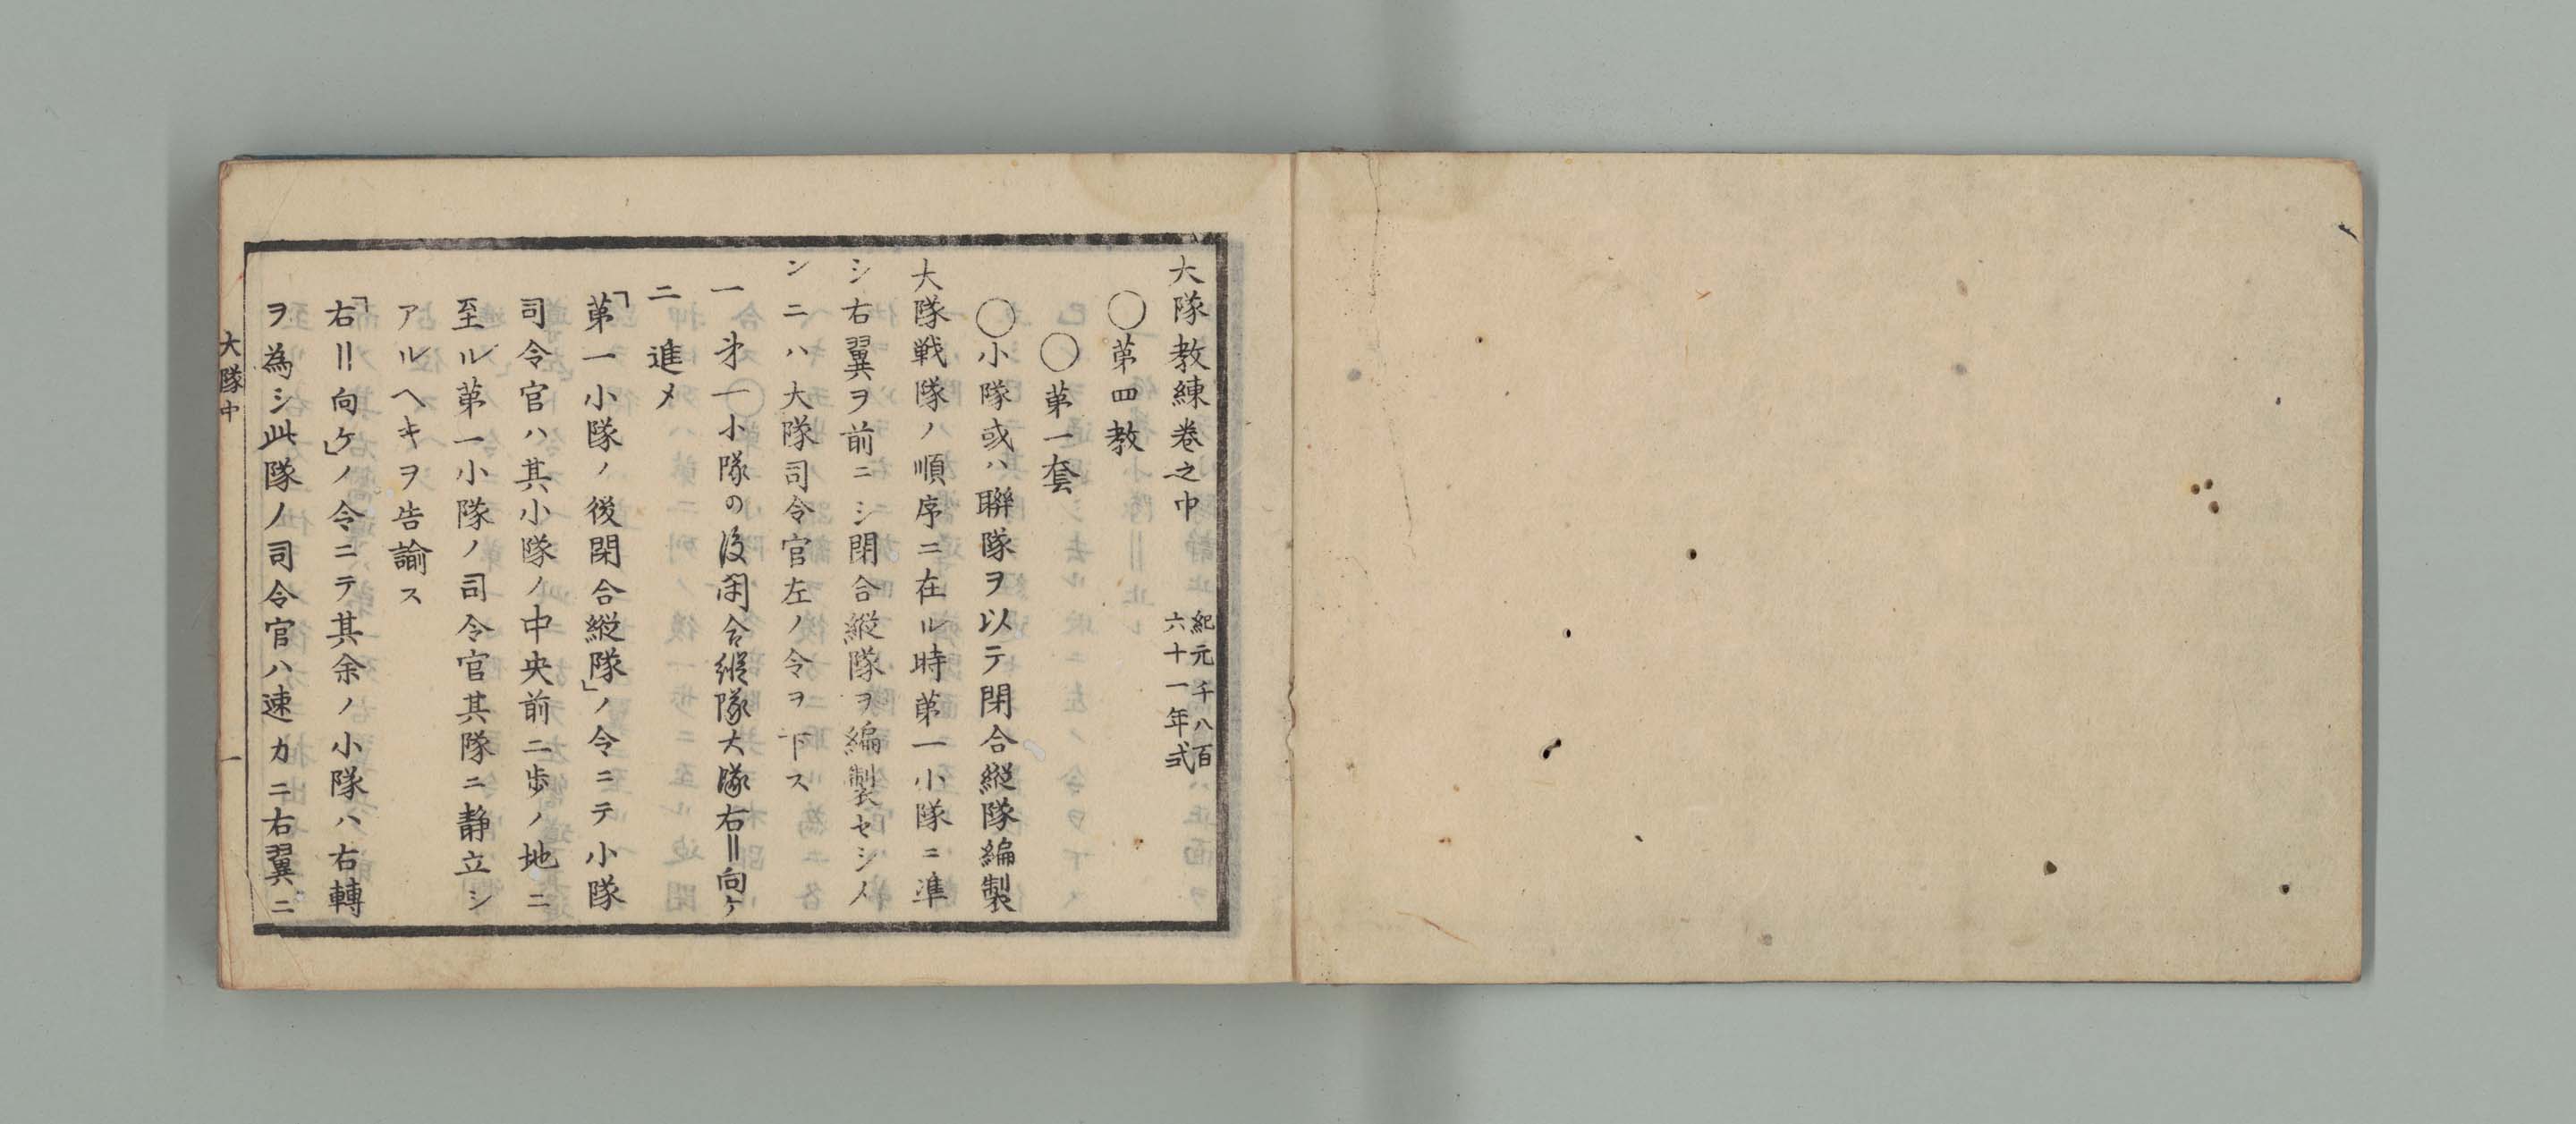 大隊教練巻之中
紀元千八百
六十一年式
〇第四教
〇第一套
〇小隊或ハ聯隊ヲ以テ閉合縦隊編製
大隊戦隊ノ順序ニ在ル時第一小隊ニ準
シ右翼ヲ前ニシ閉合縦隊ヲ編製セシメ
ンニハ大隊司令官左ノ令ヲ下ス
一 第一小隊の後閉合縦隊大隊右〢向ケ
二 進メ
「第一小隊ノ後閉合縦隊」ノ令ニテ小隊
司令官ハ其小隊ノ中央前二歩ノ地ニ
至ル第一小隊ノ司令官其隊ニ静立シ
アルヘキヲ告諭ス
「右〢向ケ」ノ令ニテ其余ノ小隊ハ右轉
ヲ為シ此隊ノ司令官ハ速カニ右翼ニ
大隊中
一